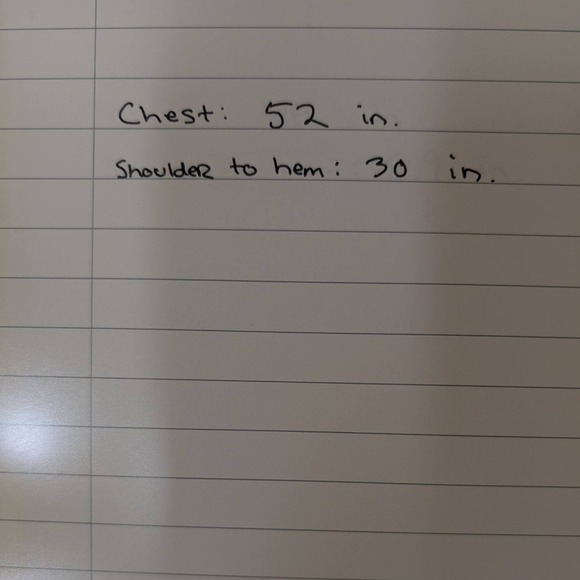 Chest: 52 in.
Shoulder to hem: 30 in.